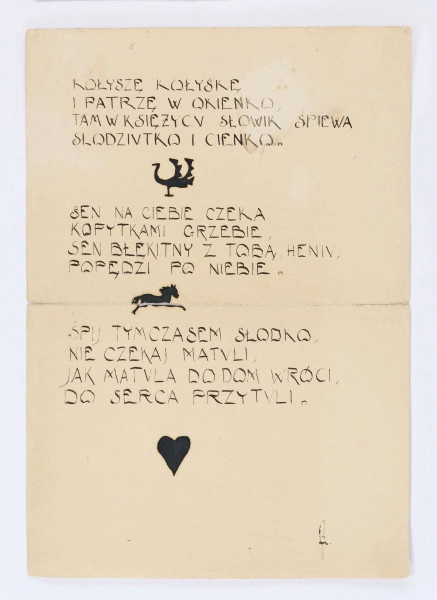 KOŁYSZĘ KOŁYSKĘ
I PATRZĘ W OKIENKO,
TAM W KSIĘŻYCV SŁOWIK ŚPIEWA
SŁODZIVTKO I CIENKO.
SEN NA CIEBIE CZEKA
KOPYTKAMI GRZEBIE,
SEN BŁĘKITNY Z TOBĄ, HENIV,
POPĘDZI PO NIEBIE.
ŚPIJ TYMCZASEM SŁODKO,
NIE CZEKAJ MATVLI,
JAK MATVLA DO DOM WRÓCI,
DO SERCA PRZYTVLI.